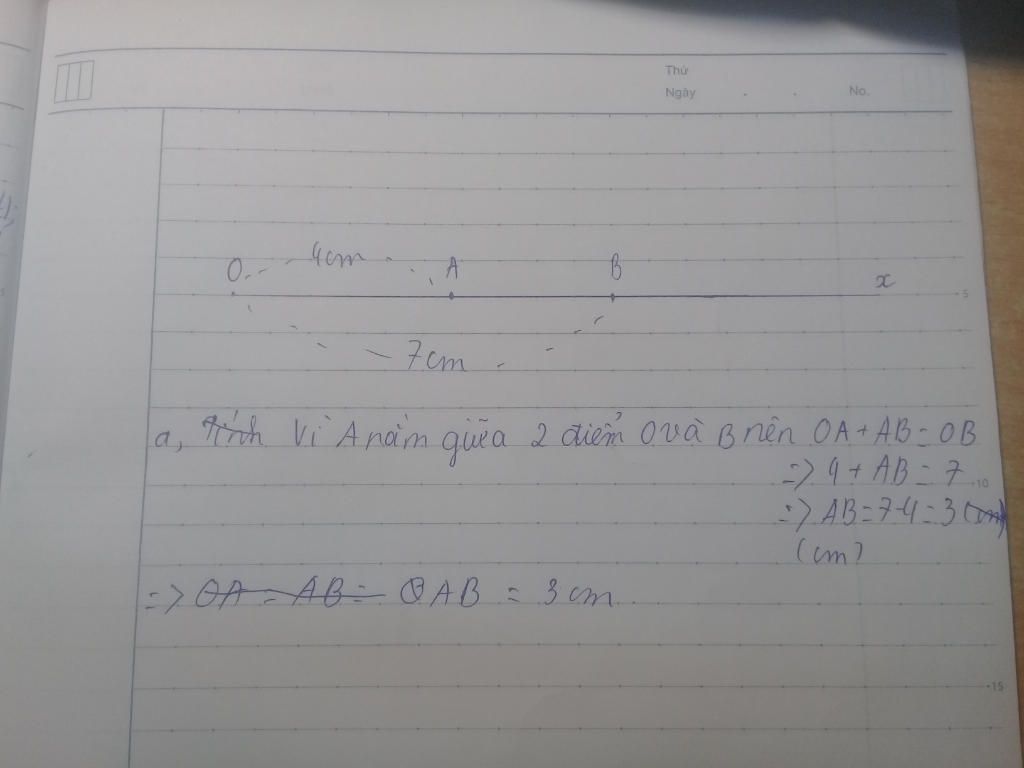 Thứ
Ngày . . No.
O 4cm A B x
5
7cm
a, Tính Vì A nằm giữa 2 điểm O và B nên OA + AB = OB
=> 4 + AB = 7
10
=> AB = 7-4 = 3 (cm)
(cm)
=> OA - AB = AB = 3 cm
15